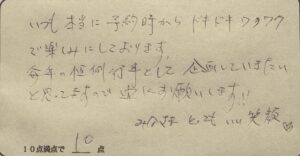 いつも本当に予約時からドキドキワクワク
で楽しみにしております。
毎年の恒例行事として企画していきたい
と思ってますので逆にお願いします!!
みなさま とっても いい笑顔
10点満点で 10 点